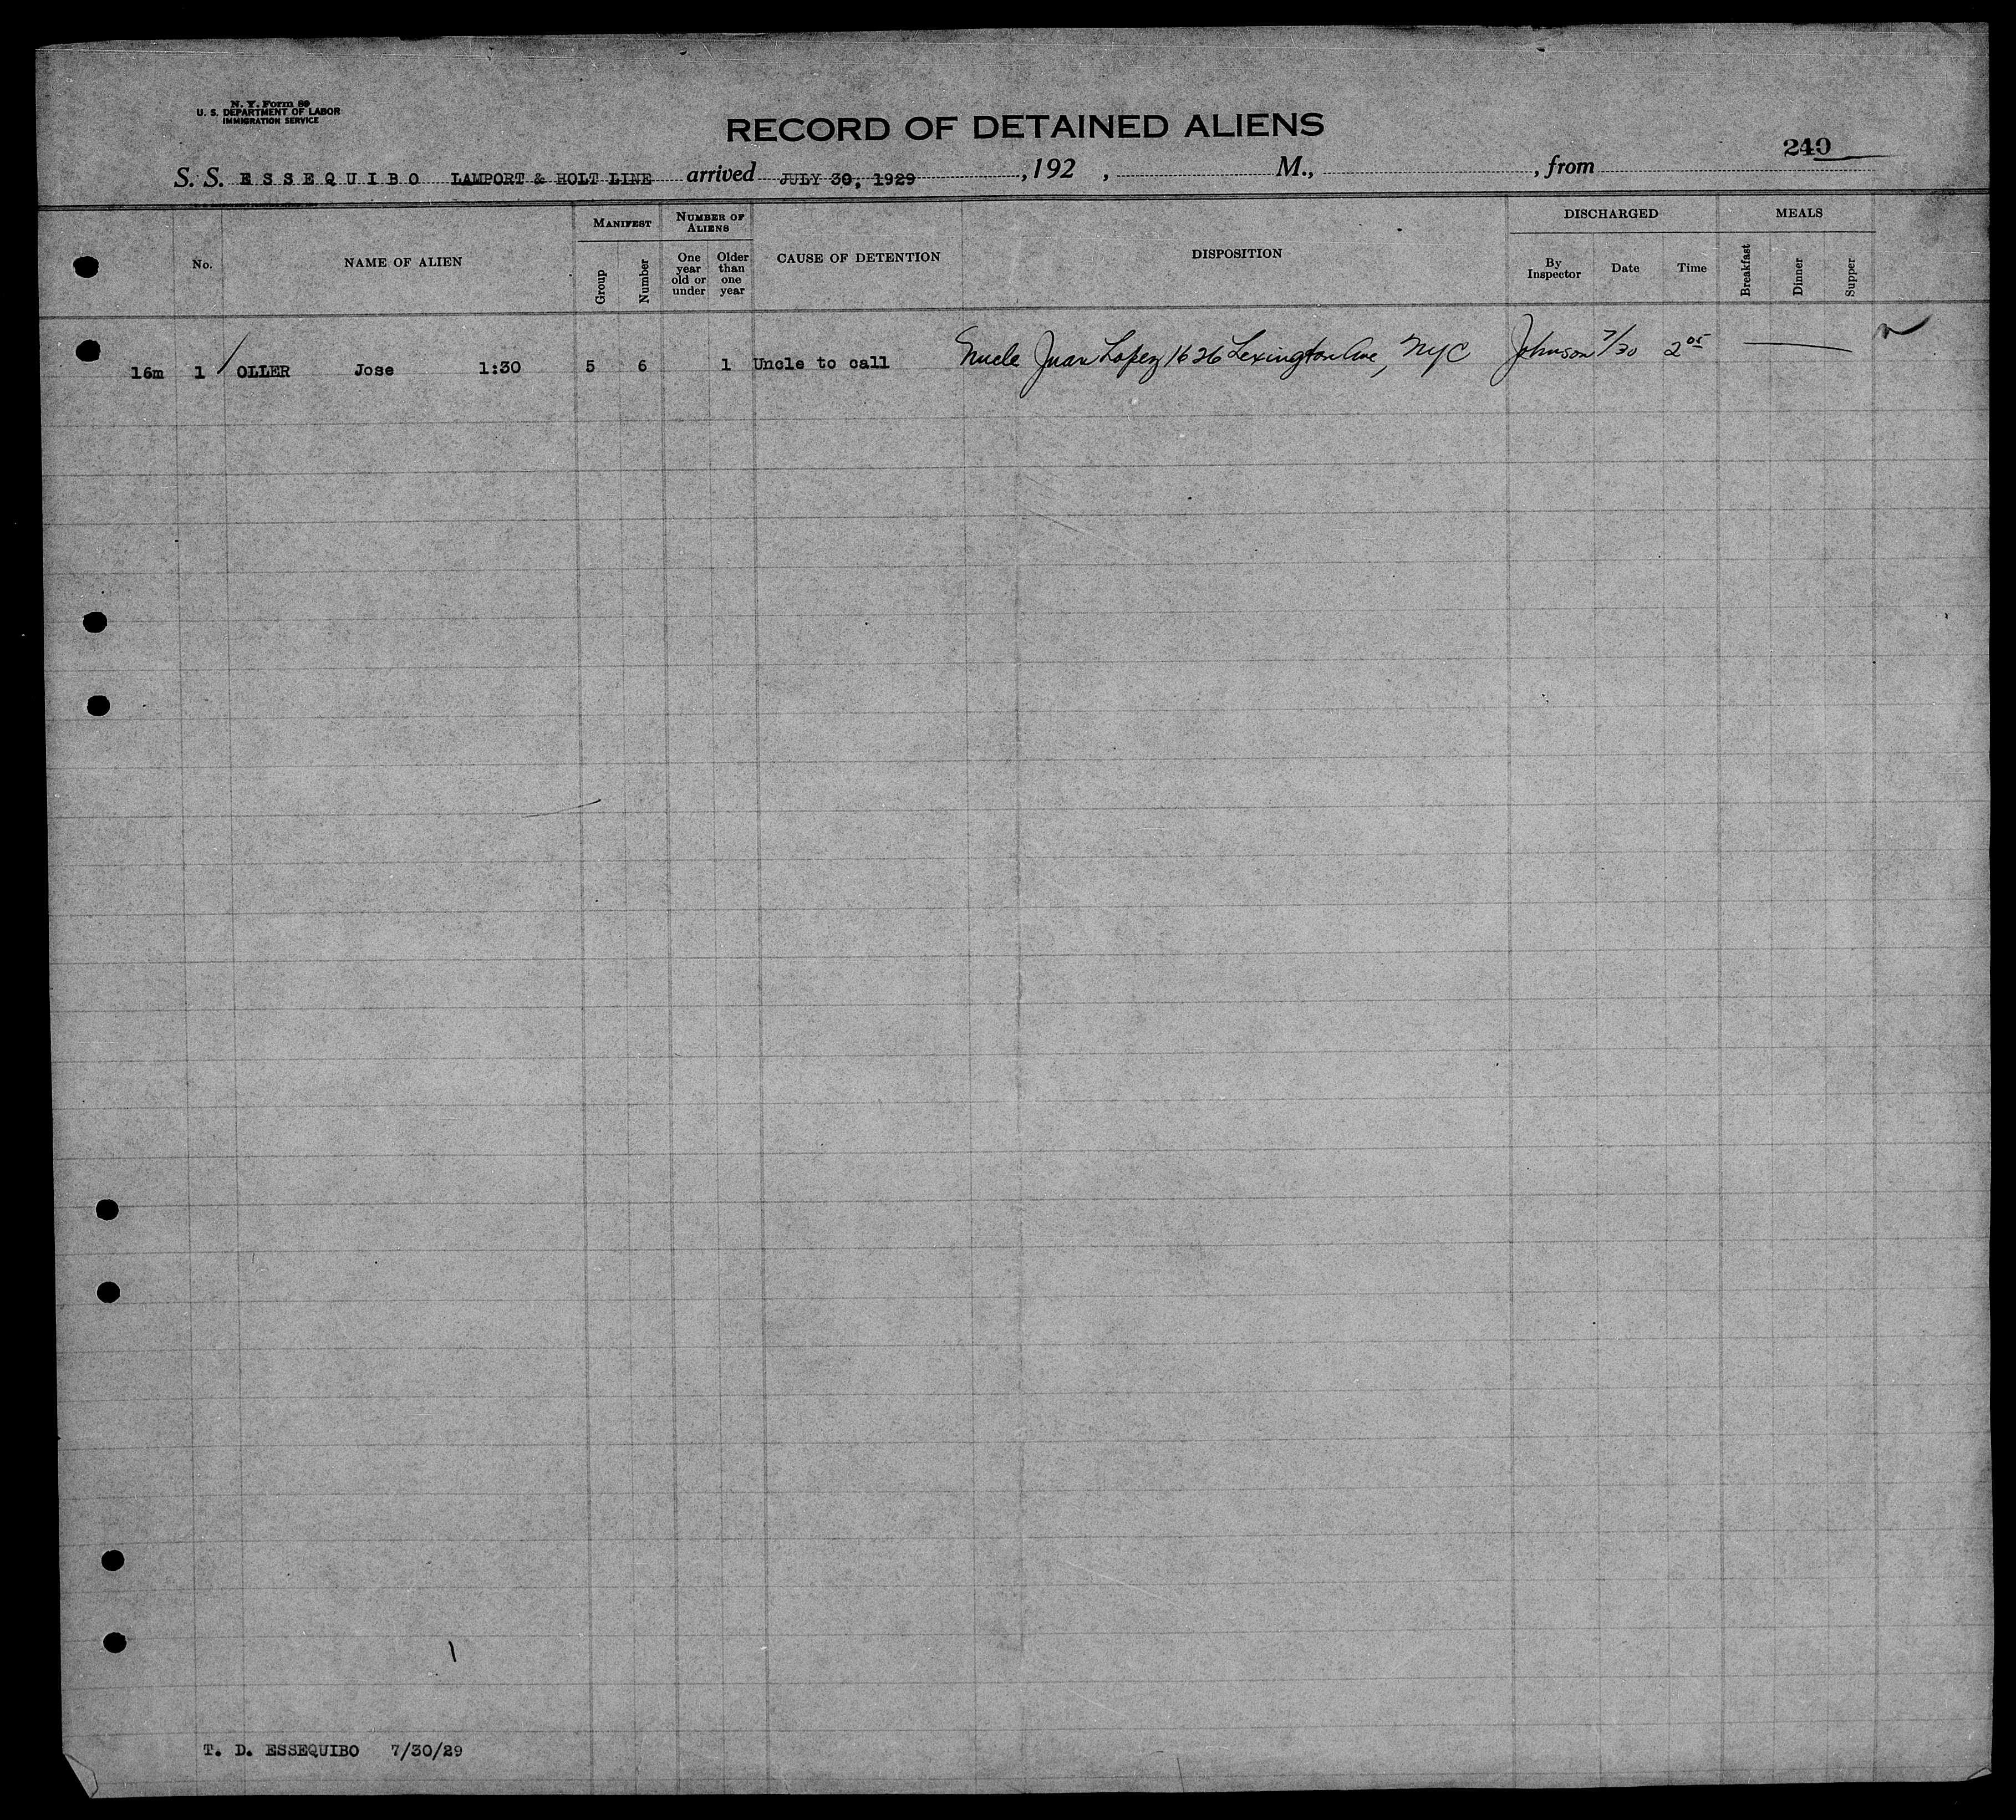 N. Y. Form 89
U. S. DEPARTMENT OF LABOR
IMMIGRATION SERVICE
RECORD OF DETAINED ALIENS
240
S. S. ESSEQUIBO LAMPORT & HOLT LINE arrived JULY 30, 1929 , 192 , M., , from
No. NAME OF ALIEN MANIFEST Group Number NUMBER OF ALIENS One year old or under Older than one year CAUSE OF DETENTION DISPOSITION DISCHARGED By Inspector Date Time MEALS Breakfast Dinner Supper
16m 1 OLLER Jose 1:30 5 6 1 Uncle to call Uncle Juan Lopez 1626 Lexington Ave, NYC Johnson 7/30 2 05
T. D. ESSEQUIBO 7/30/29